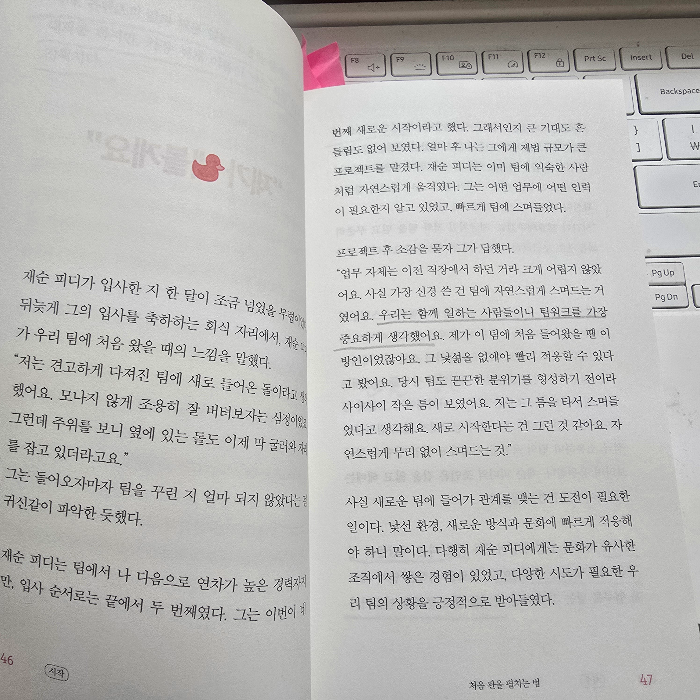 재순 피디가 입사한 지 한 달이 조금 넘었을 무렵이었
뒤늦게 그의 입사를 축하하는 회식 자리에서, 재순
가 우리 팀에 처음 왔을 때의 느낌을 말했다.
“저는 견고하게 다져진 팀에 새로 들어온 돌이라고
했어요. 모나지 않게 조용히 잘 버텨보자는 심정이었
그런데 주위를 보니 옆에 있는 돌도 이제 막 굴러와
를 잡고 있더라고요.”
그는 들어오자마자 팀을 꾸린 지 얼마 되지 않았다는
귀신같이 파악한 듯했다.
재순 피디는 팀에서 나 다음으로 연차가 높은 경력자
만, 입사 순서로는 끝에서 두 번째였다. 그는 이번이
46
시작
번째 새로운 시작이라고 했다. 그래서인지 큰 기대도 흔
들림도 없어 보였다. 얼마 후 나는 그에게 제법 규모가 큰
프로젝트를 맡겼다. 재순 피디는 이미 팀에 익숙한 사람
처럼 자연스럽게 움직였다. 그는 어떤 업무에 어떤 인력
이 필요한지 알고 있었고, 빠르게 팀에 스며들었다.
프로젝트 후 소감을 묻자 그가 답했다.
“업무 자체는 이전 직장에서 하던 거라 크게 어렵지 않았
어요. 사실 가장 신경 쓴 건 팀에 자연스럽게 스며드는 거
였어요. 우리는 함께 일하는 사람들이니 팀워크를 가장
중요하게 생각했어요. 제가 이 팀에 처음 들어왔을 땐 이
방인이었잖아요. 그 낯섦을 없애야 빨리 적응할 수 있다
고 봤어요. 당시 팀도 끈끈한 분위기를 형성하기 전이라
사이사이 작은 틈이 보였어요. 저는 그 틈을 타서 스며들
었다고 생각해요. 새로 시작한다는 건 그런 것 같아요. 자
연스럽게 무리 없이 스며드는 것.”
사실 새로운 팀에 들어가 관계를 맺는 건 도전이 필요한
일이다. 낯선 환경, 새로운 방식과 문화에 빠르게 적응해
야 하니 말이다. 다행히 재순 피디에게는 문화가 유사한
조직에서 쌓은 경험이 있었고, 다양한 시도가 필요한 우
리 팀의 상황을 긍정적으로 받아들였다.
처음 판을 펼치는 법
47
F8
F9
F10
F11
F12
Prt Sc
Insert
Del
Backspace
}
]
Pg Up
Pg Dn